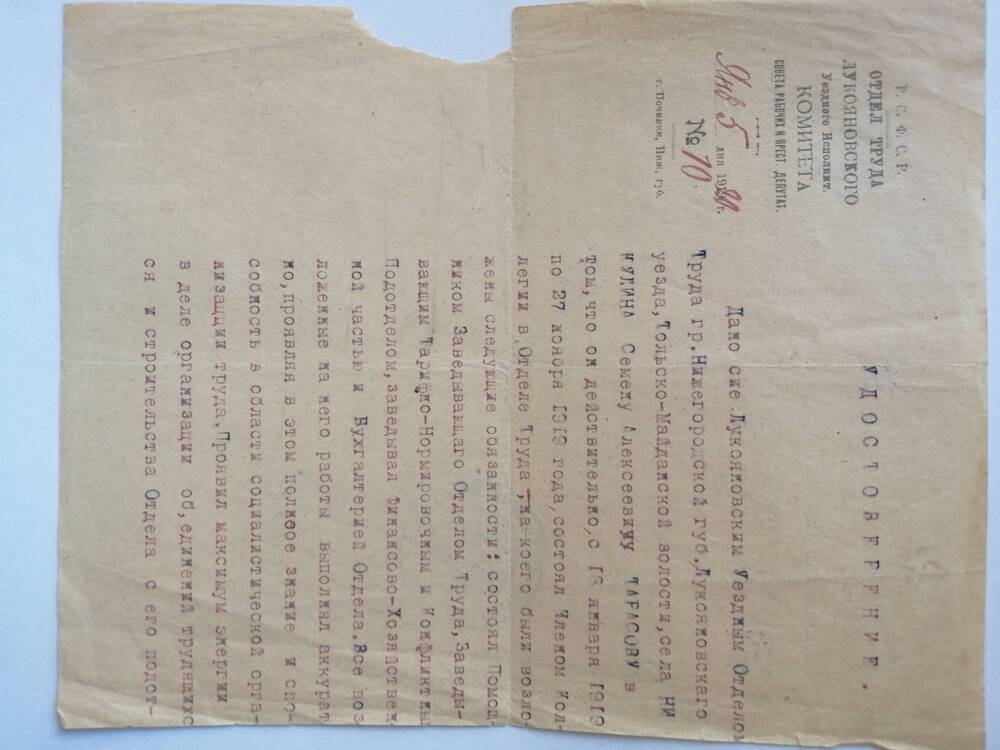 Р. С. Ф. С. Р.
ОТДЕЛ ТРУДА
ЛУКОЯНОВСКОГО
Уездного Исполнит.
КОМИТЕТА
СОВЕТА РАБОЧИХ И КРЕСТ. ДЕПУТАТ.
Янв 5 дня 1920 г.
№ 10
г. Починки, Ниж. губ.
УДОСТОВЕРЕНИЕ.
Дано сие Лукояновским Уездным Отделом
Труда гр.Нижегородской губ.Лукояновскаго
уезда,Тольско-Майданской волости,села НИ
КУЛИНА Семену Алексеевичу ТАРАСОВУ в
том,что он действительно,с 18 января 1919
по 27 ноября 1919 года,состоял Членом Кол-
легии в Отделе Труда ,на коего были возло-
жены следующие обязанности: состоял Помощ-
ником Заведывающаго Отделом Труда,Заведы-
вающим Тарифно-Нормировочным и Конфликтным
Подотделом,заведывал Финансово-Хозяйствен-
ной частью и Бухгалтерией Отдела.Все воз-
ложенные на него работы выполнял аккурат
но,проявляя в этом полное знание и спо-
собность в области социалистической орга-
низацции труда.Проявил максимум энергии
в деле организации об,единений трудящихс
ся и строительства Отдела с его подот-